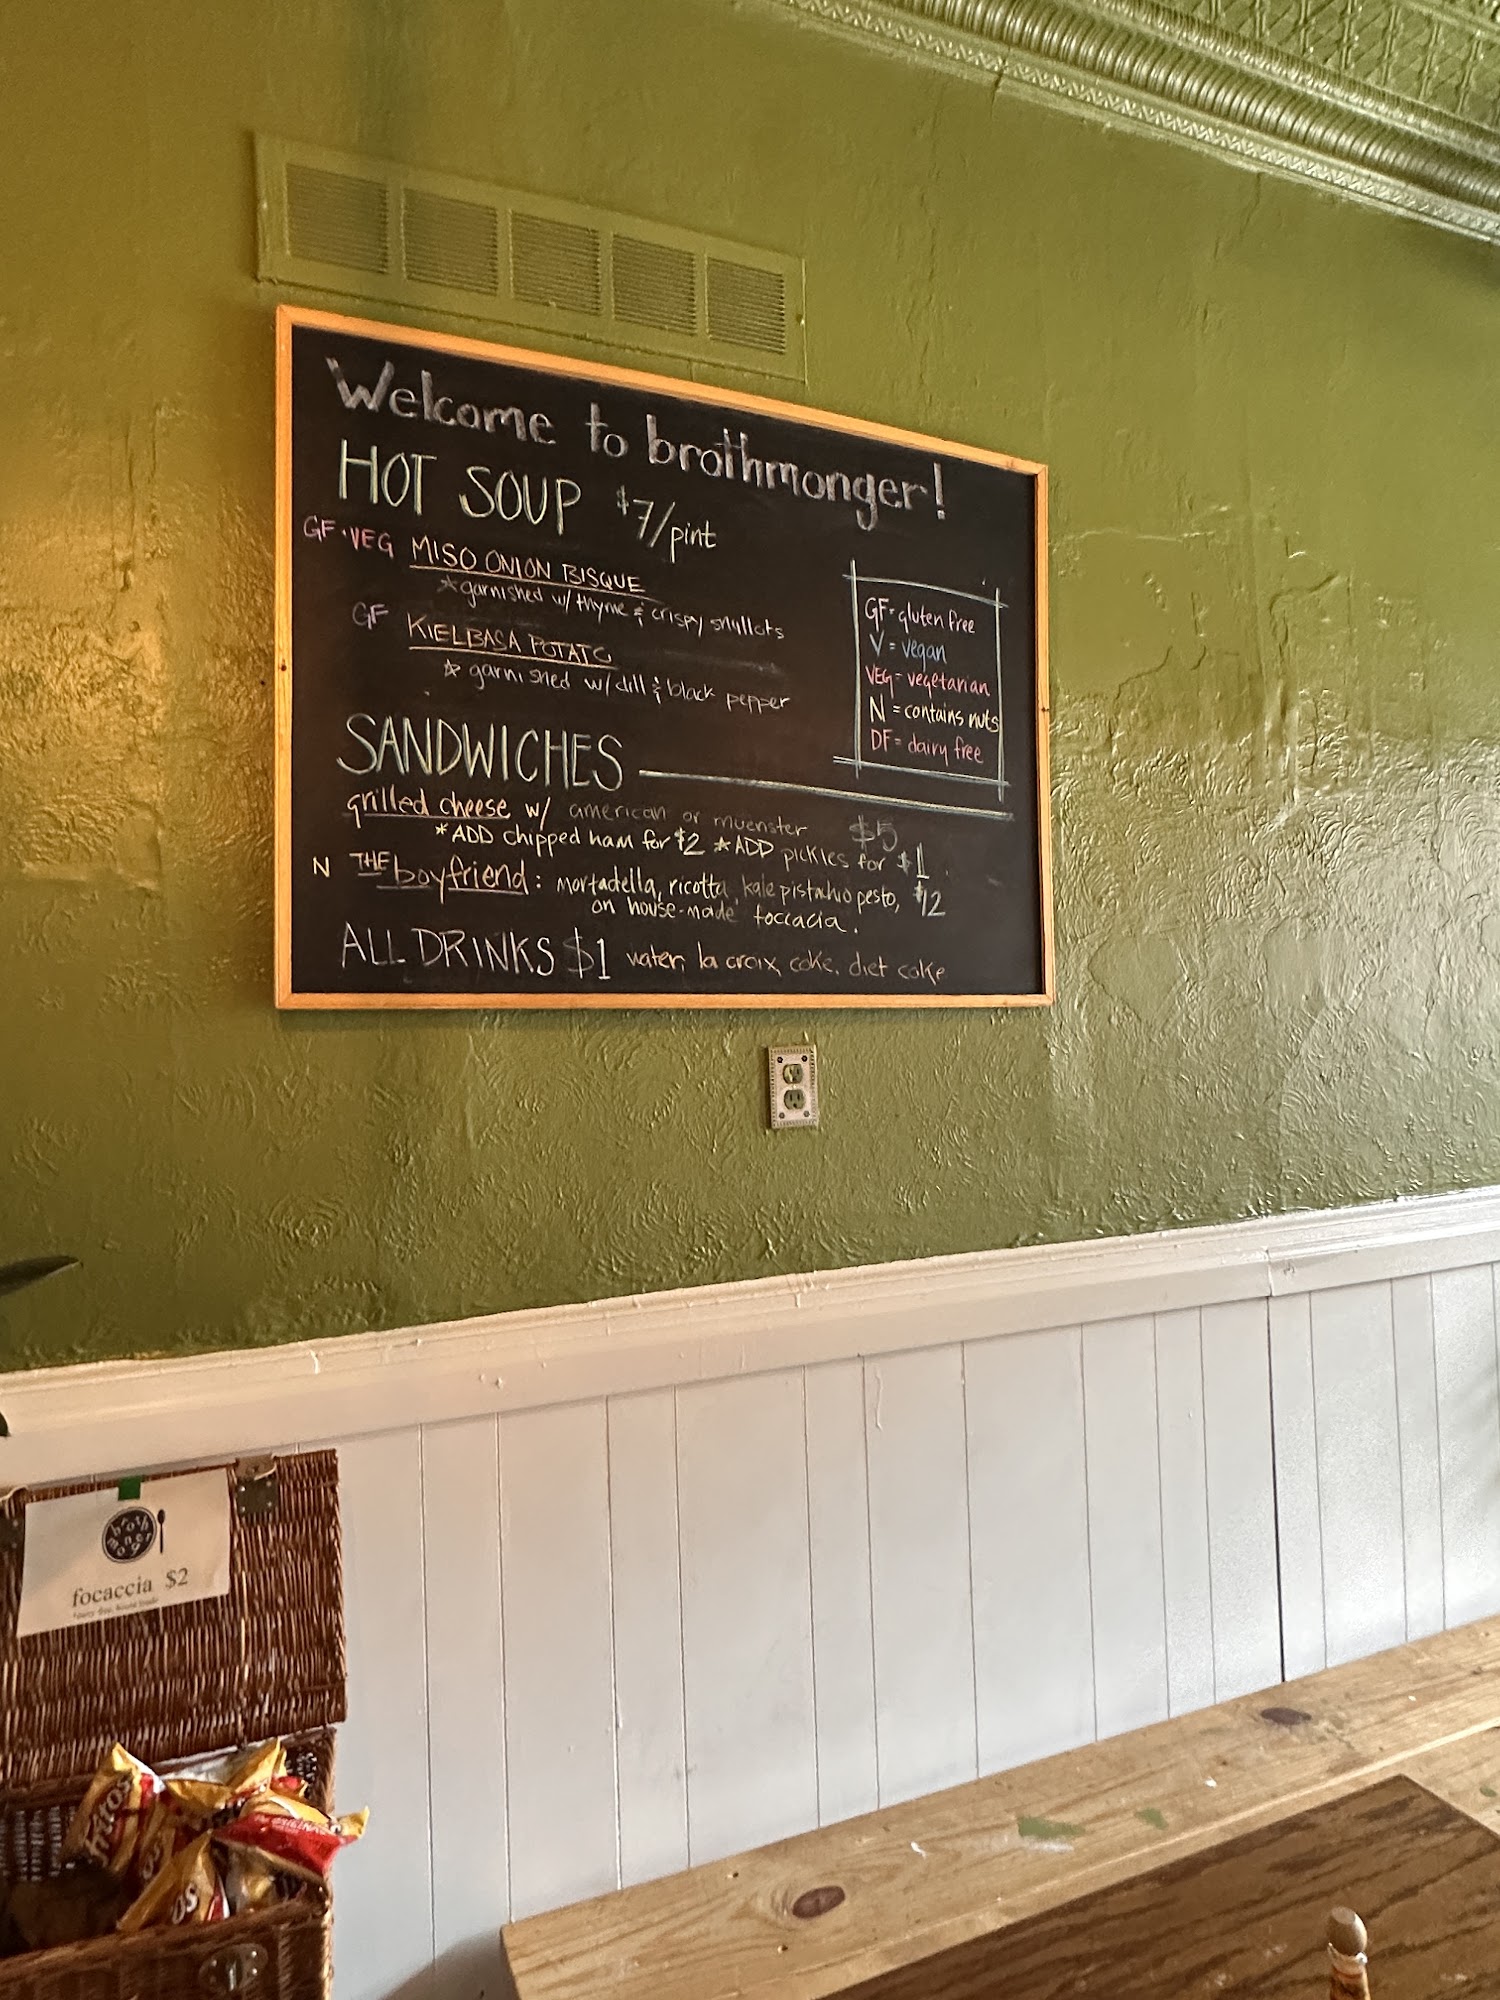 Welcome to brothmonger!
HOT SOUP $7/pint
GF·VEG MISO ONION BISQUE
*garnished w/ thyme & crispy shallots
GF KIELBASA POTATO
* garnished w/ dill & black pepper
GF=gluten free
V = vegan
VEG= vegetarian
N = contains nuts
DF= dairy free
SANDWICHES
grilled cheese w/ american or muenster $5
*ADD chipped ham for $2 *ADD pickles for $1
N THE boyfriend: mortadella, ricotta, kale pistachio pesto, $12
on house-made foccacia.
ALL DRINKS $1 water, la croix, coke, diet coke
broth
monger
focaccia $2
fritos
ORIGINAL